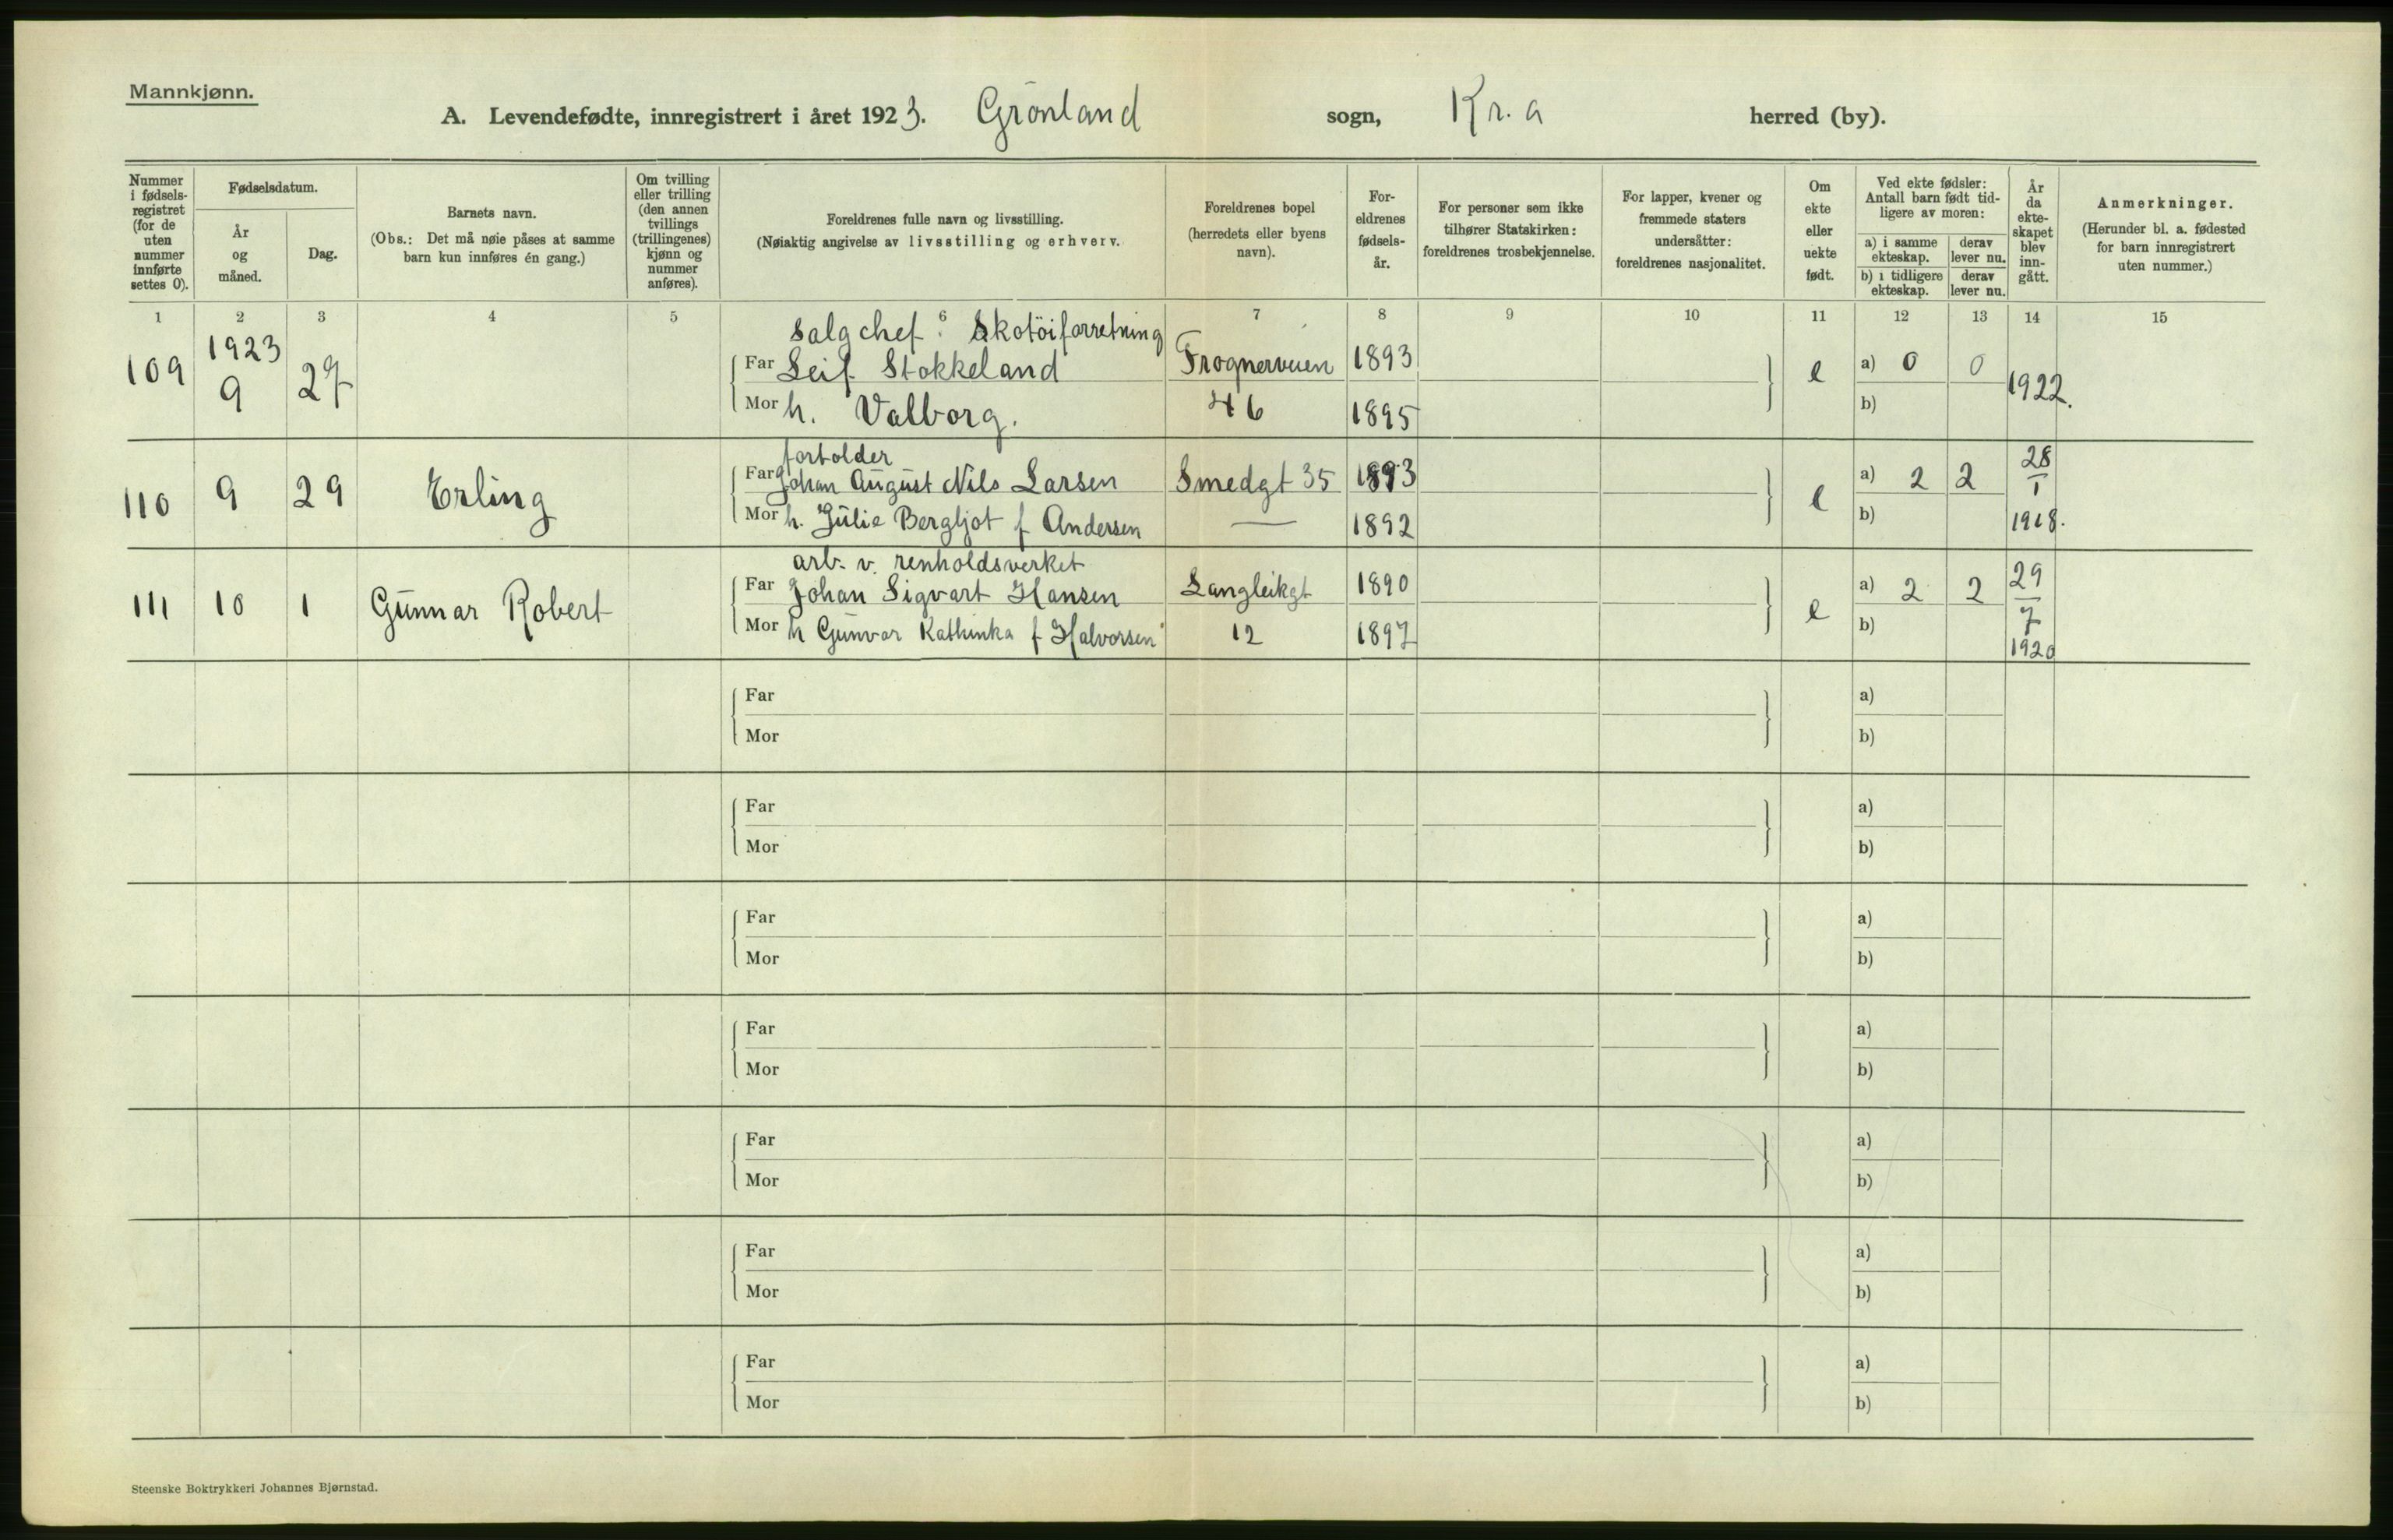 Mannkjønn.
A. Levendefødte, innregistrert i året 1923. Grönland sogn, Kr.a herred (by).
Nummer i fødsels-registret (for de uten nummer innførte settes 0).
Fødselsdatum.
År og måned.
Dag.
Barnets navn.
(Obs.: Det må nøie påses at samme barn kun innføres én gang.)
Om tvilling eller trilling (den annen tvillings (trillingenes) kjønn og nummer anføres).
Foreldrenes fulle navn og livsstilling.
(Nøiaktig angivelse av livsstilling og erhverv.
Foreldrenes bopel (herredets eller byens navn).
For-eldrenes fødsels-år.
For personer som ikke tilhører Statskirken: foreldrenes trosbekjennelse.
For lapper, kvener og fremmede staters undersåtter: foreldrenes nasjonalitet.
Om ekte eller uekte født.
Ved ekte fødsler: Antall barn født tid-ligere av moren:
a) i samme ekteskap.
derav lever nu.
b) i tidligere ekteskap.
derav lever nu.
År da ekte-skapet blev inn-gått.
Anmerkninger.
(Herunder bl. a. fødested for barn innregistrert uten nummer.)
1 2 3 4 5 6 7 8 9 10 11 12 13 14 15
salgchef : Skotöiforretning
109 1923 9 27 Far Leif Stokkeland Frognerveien 1893 e a) 0 0 1922.
Mor h. Valborg. 46 1895 b)
110 9 29 Erling Far Johan August Nils Larsen Smedgt 35 1893 e a) 2 2 28/1 1918.
Mor h. Julie Bergljot f Andersen — 1892 b)
arb. v. renholdsverket
111 10 1 Gunnar Robert Far Johan Sigvart Hansen Langleikgt 1890 e a) 2 2 29/7 1920
Mor h Gunvor Kathinka f Halvorsen 12 1897 b)
Far a)
Mor b)
Far a)
Mor b)
Far a)
Mor b)
Far a)
Mor b)
Far a)
Mor b)
Far a)
Mor b)
Far a)
Mor b)
Steenske Boktrykkeri Johannes Bjørnstad.